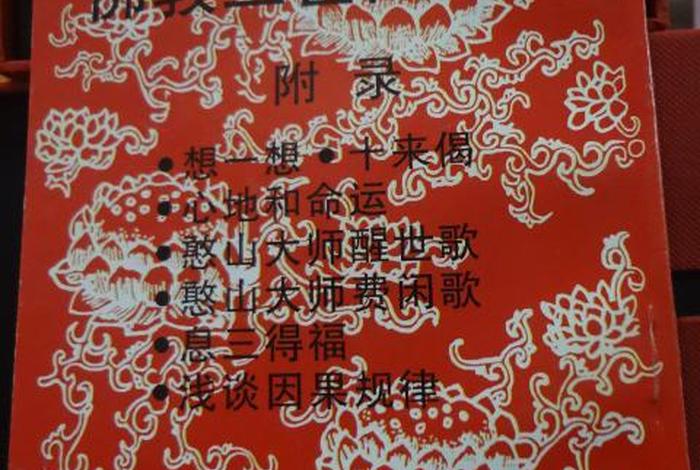 附 录
• 想一想 • 十来偈
• 心地和命运
• 憨山大师醒世歌
• 憨山大师费闲歌
• 息三得福
• 浅谈因果规律